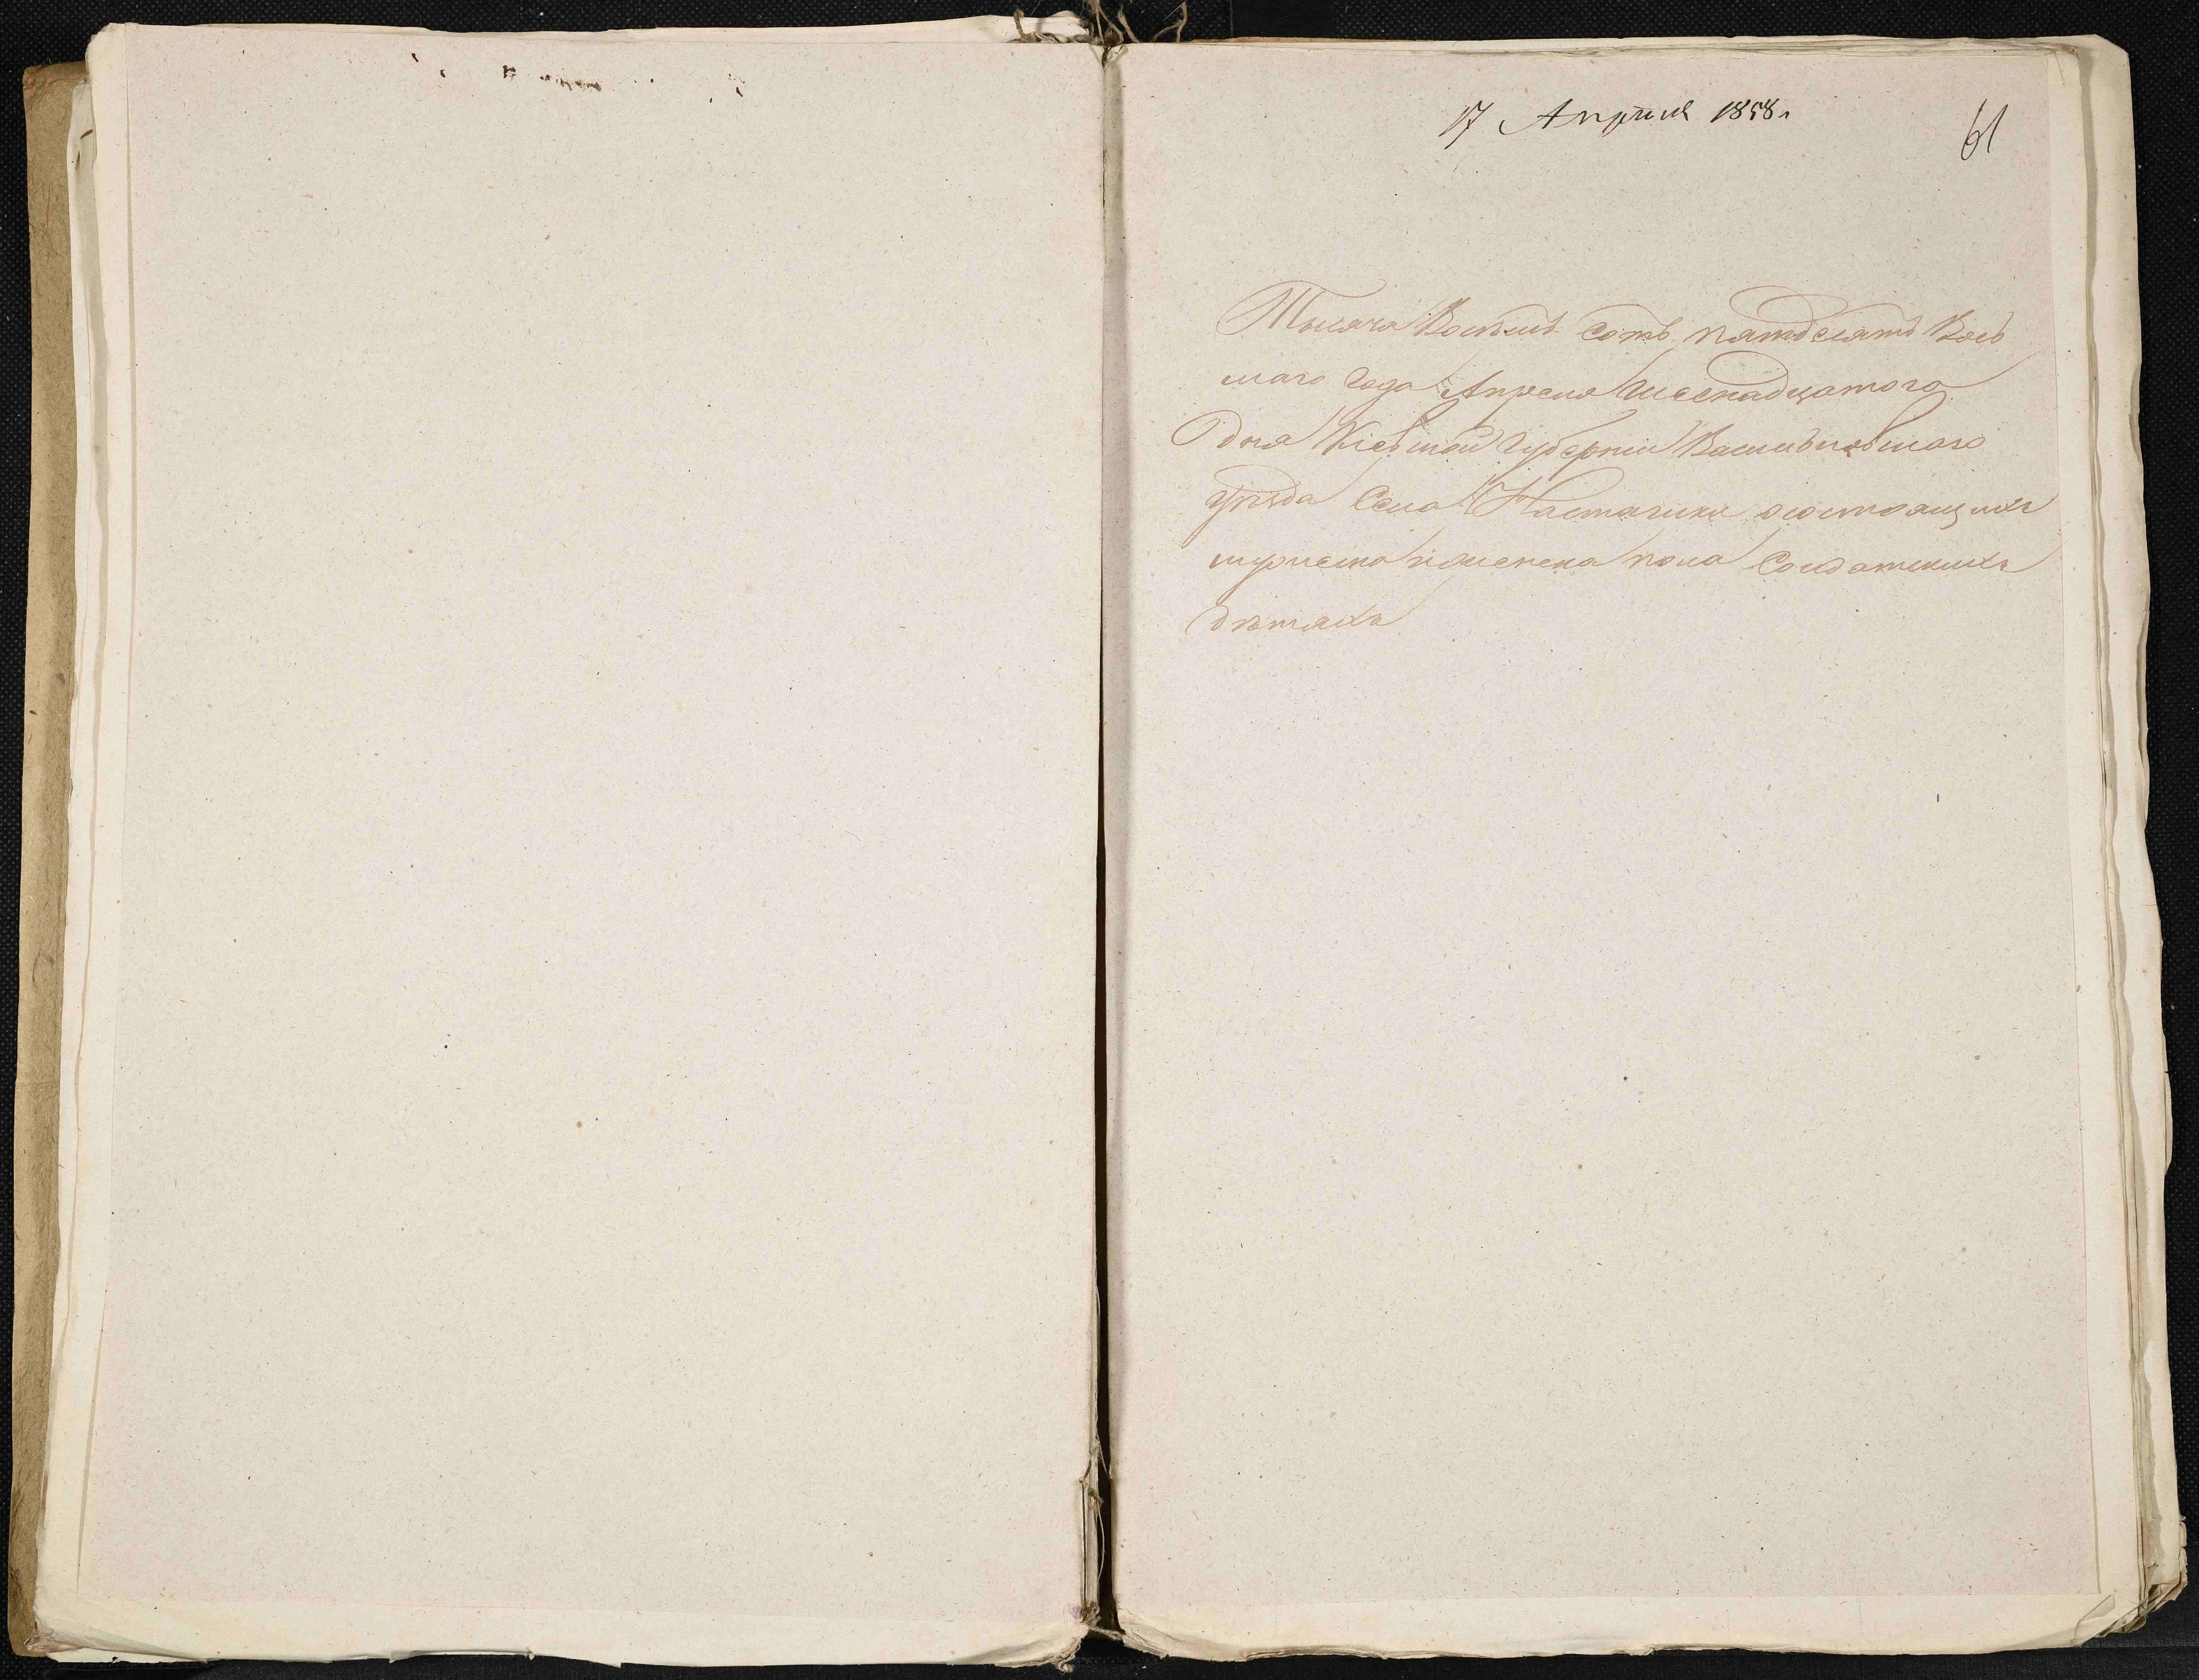 17 Апрѣля 1858 г
61
Тысяча Восѣмь Сотъ пятдесятъ Вось
маго Года Апреля Шеснадцатого
дня Кіевской Губерніи Васильковскаго
уѣзда Села Насташки осостоящихъ
мужеска иженска пола Солдатскихъ
дѣтяхъ